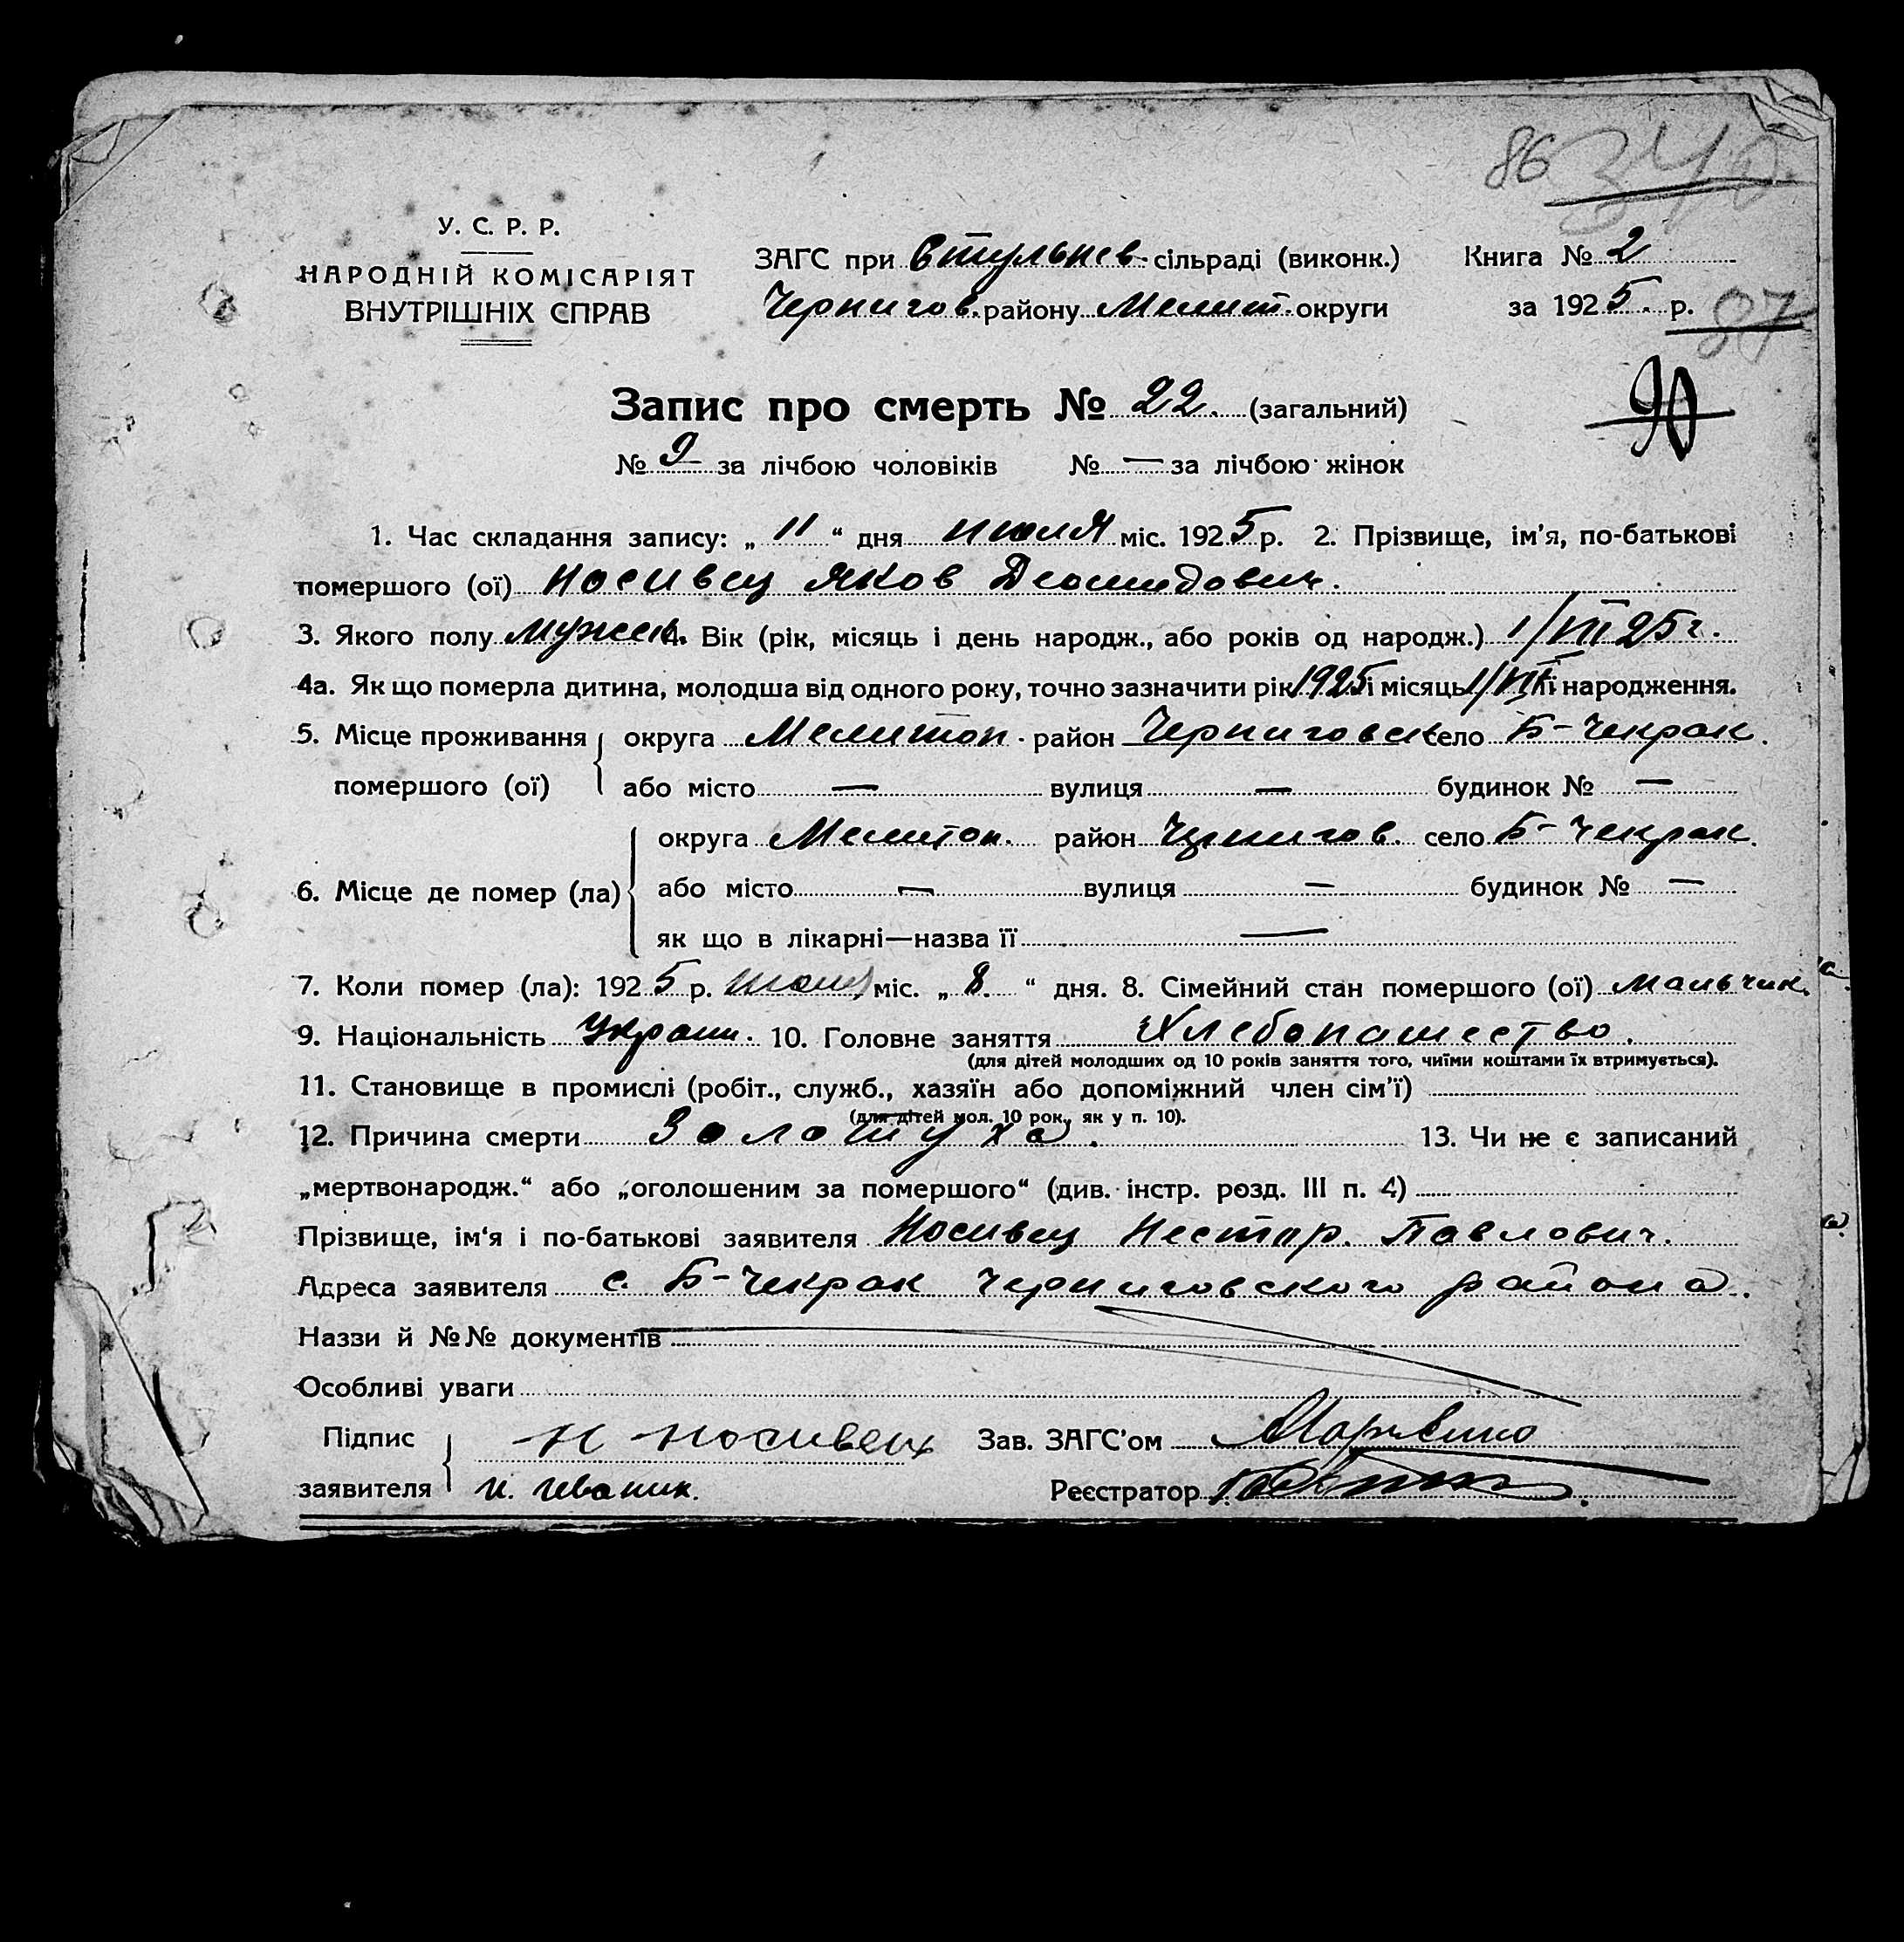 86 340.
У. С. Р. Р.
НАРОДНІЙ КОМІСАРІЯТ
ВНУТРІШНІХ СПРАВ
ЗАГС при Втульнев. сільраді (виконк.) Книга № 2
Чернигов. району Мелит. округи за 1925 р.
87
Запис про смерть № 22. (загальний)
90
№ 9 за лічбою чоловіків № — за лічбою жінок
1. Час складання запису: „ 11 “ дня июля міс. 1925 р. 2. Прізвище, ім'я, по-батькові
помершого (ої) Носивец Яков Деомидович.
3. Якого полу мужск. 4. Вік (рік, місяць і день народж., або років од народж.) 1/VII 25 г.
4а. Як що померла дитина, молодша від одного року, точно зазначити рік 1925 і місяць 1/VII її народження.
5. Місце проживання округа Мелитоп. район Черниговск село Б-Чекрак.
помершого (ої) або місто — вулиця — будинок № —
округа Мелитоп. район Чернигов. село Б-Чекрак.
6. Місце де помер (ла) або місто — вулиця — будинок № —
як що в лікарні—назва її —
7. Коли помер (ла): 1925 р. июля міс. „ 8. “ дня. 8. Сімейний стан помершого (ої) мальчик.
9. Національність Украин. 10. Головне заняття Хлебопашество.
(для дітей молодших од 10 років заняття того, чиїми коштами їх втримується).
11. Становище в промислі (робіт., служб., хазяїн або допоміжний член сім'ї)
(для дітей мол. 10 рок., як у п. 10).
12. Причина смерти Золотуха. 13. Чи не є записаний
„мертвонародж.“ або „оголошеним за помершого“ (див. інстр. розд. III п. 4)
Прізвище, ім'я і по-батькові заявителя Носивец Нестор. Павлович.
Адреса заявителя с. Б-Чекрак Черниговского района.
Наззи й №№ документів
Особливі уваги
Підпис Н Носивец Зав. ЗАГС'ом
заявителя Реєстратор